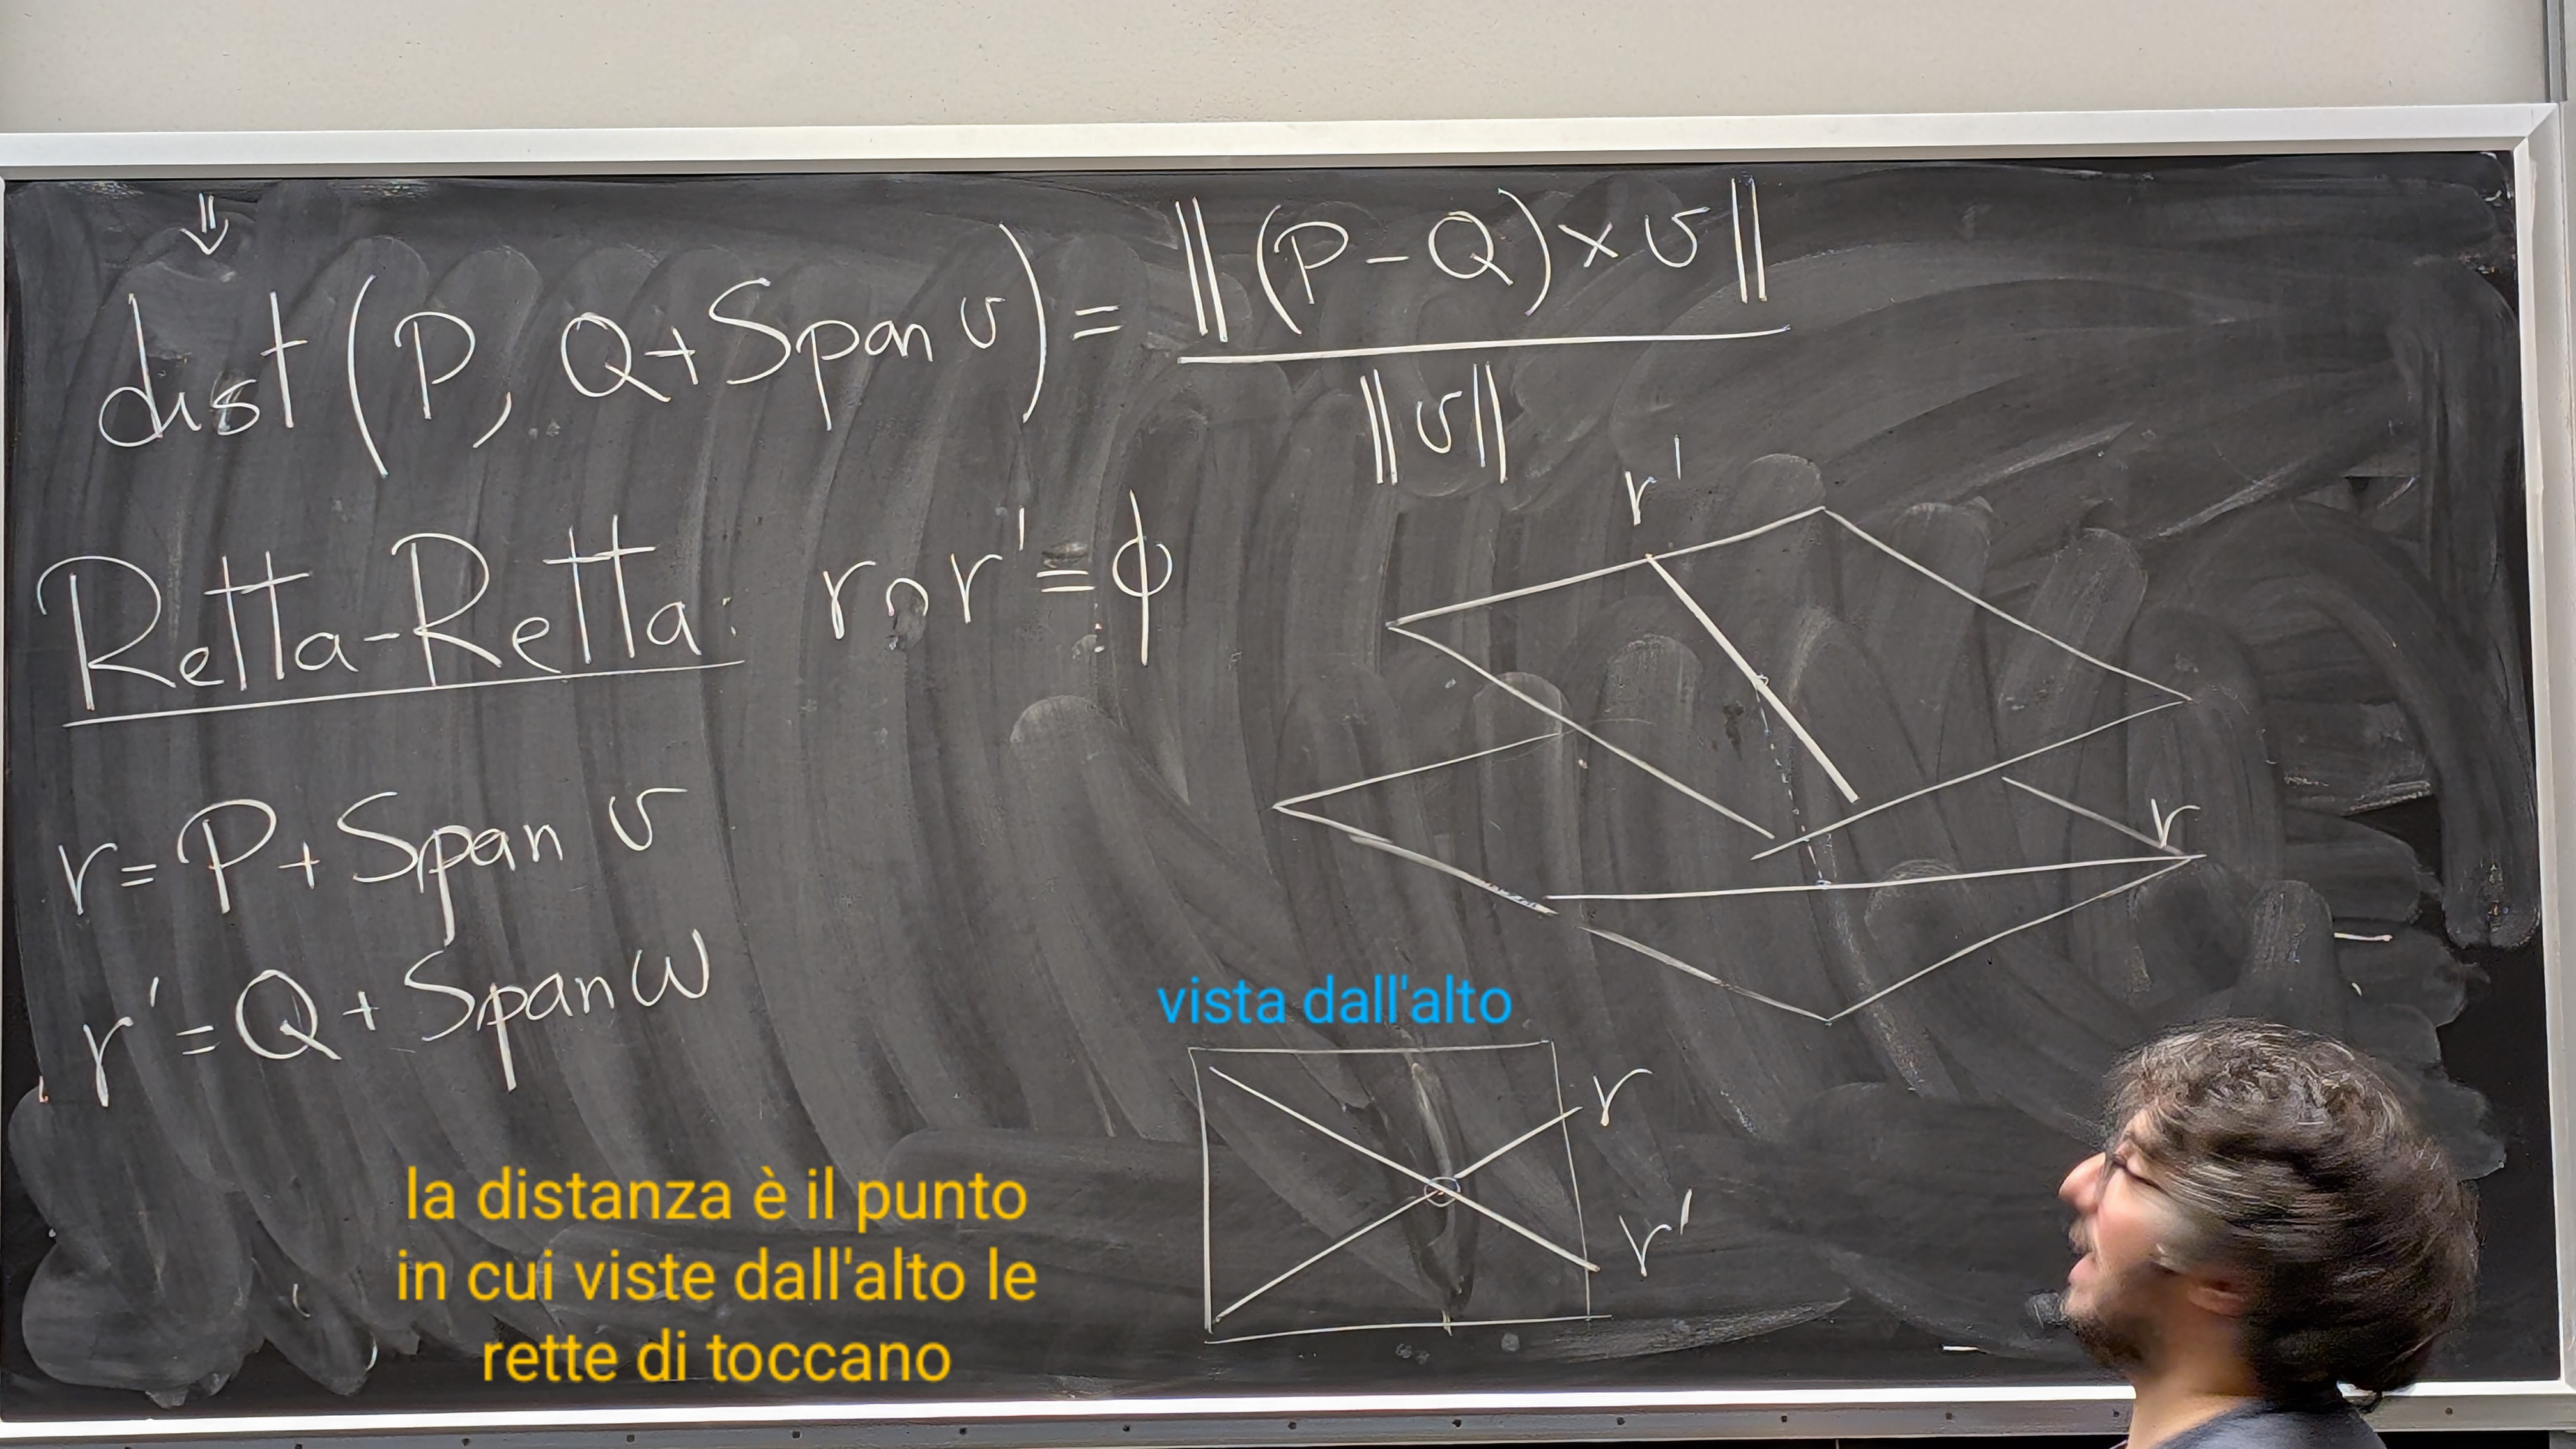 ⇓
dist(P, Q+Span v) = ‖(P-Q)×v‖
‖v‖
Retta-Retta: r∩r'=ϕ
r=P+Span v
r'=Q+Span w
r'
r
vista dall'alto
r
r'
la distanza è il punto
in cui viste dall'alto le
rette di toccano